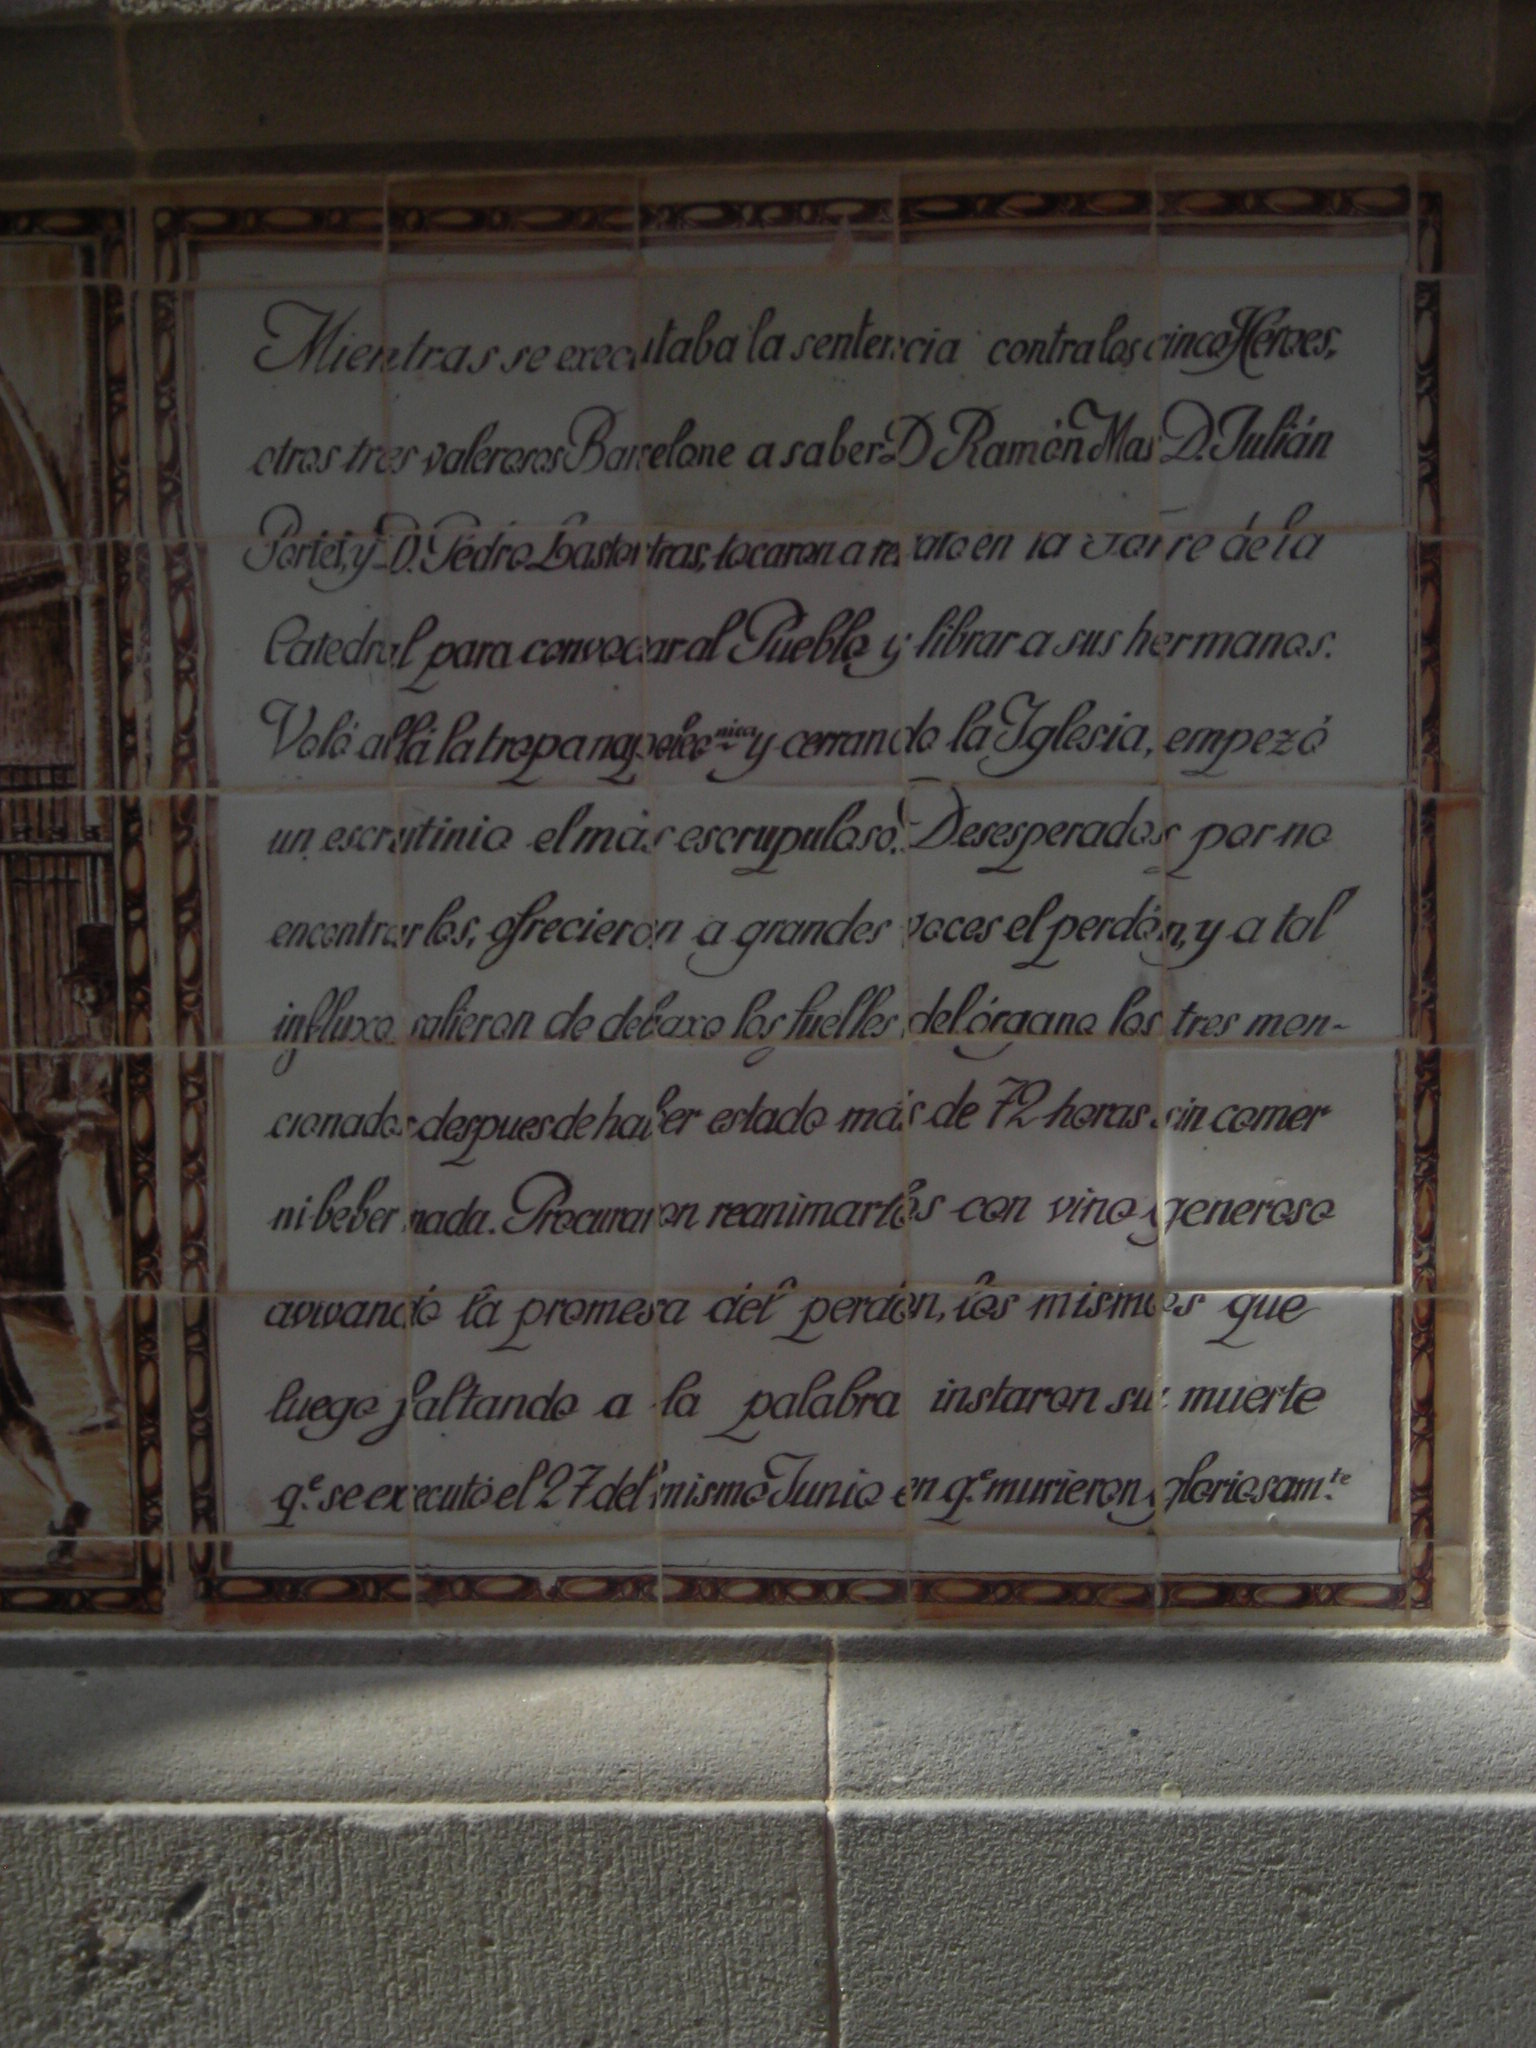 Mientras se executaba la sentencia contra los cinco Héroes,
otros tres valerosos Barcelone a saber D Ramón Mas D. Julián
Portet, y D. Pedro Lastortras, tocaron a rebato en la Torre de la
Catedral para convocar al Pueblo y librar a sus hermanos.
Voló allá la tropa napoleonica y cerrando la Iglesia, empezó
un escrutinio el más escrupuloso. Desesperados por no
encontrarlos, ofrecieron a grandes voces el perdón, y a tal
influxo salieron de debaxo los fuelles del órgano los tres men-
cionados despues de haber estado más de 72 horas sin comer
ni beber nada. Procuraron reanimarlos con vino generoso
avivando la promesa del perdón, los mismos que
luego faltando a la palabra instaron su muerte
q.e se executó el 27 del mismo Junio en q.e murieron gloriosam.te